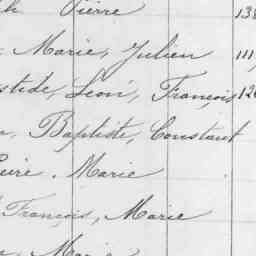 Pierre 138
Marie, Julien 111
Léon, François 120
Baptiste, Constant
Marie
François, Marie
Marie